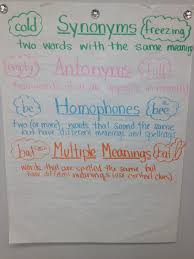 cold Synonyms freezing
two words with the same meaning
empty Antonyms full
words that are opposite in meaning
be Homophones bee
two (or more) words that sound the same
but have different meanings and spellings
bat Multiple Meanings bat
words that are spelled the same, but
have different meanings (use context clues)